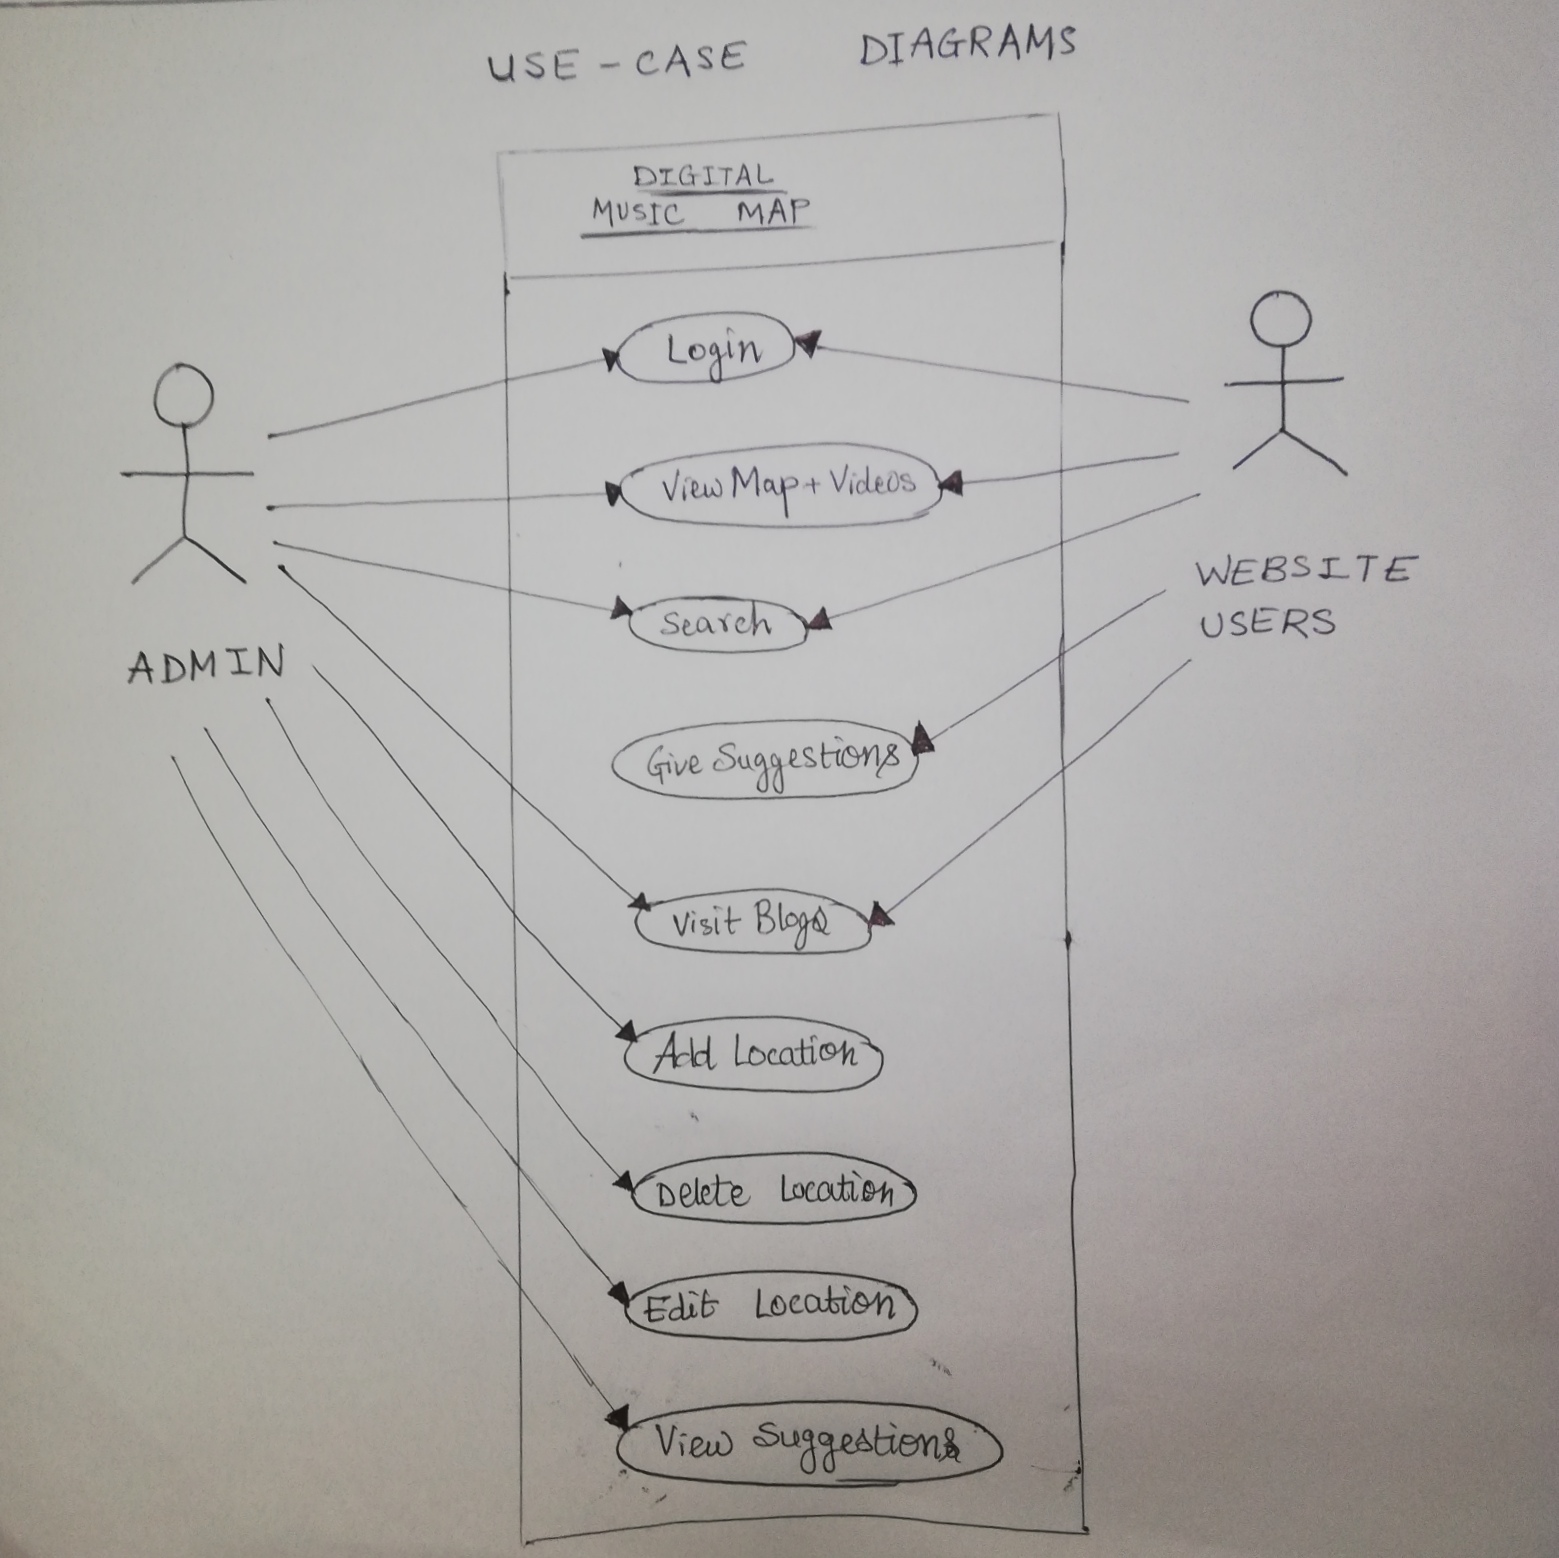 USE - CASE DIAGRAMS
DIGITAL
MUSIC MAP
Login
View Map + Videos
Search
Give Suggestions
Visit Blogs
Add Location
Delete Location
Edit Location
View Suggestions
ADMIN
WEBSITE
USERS